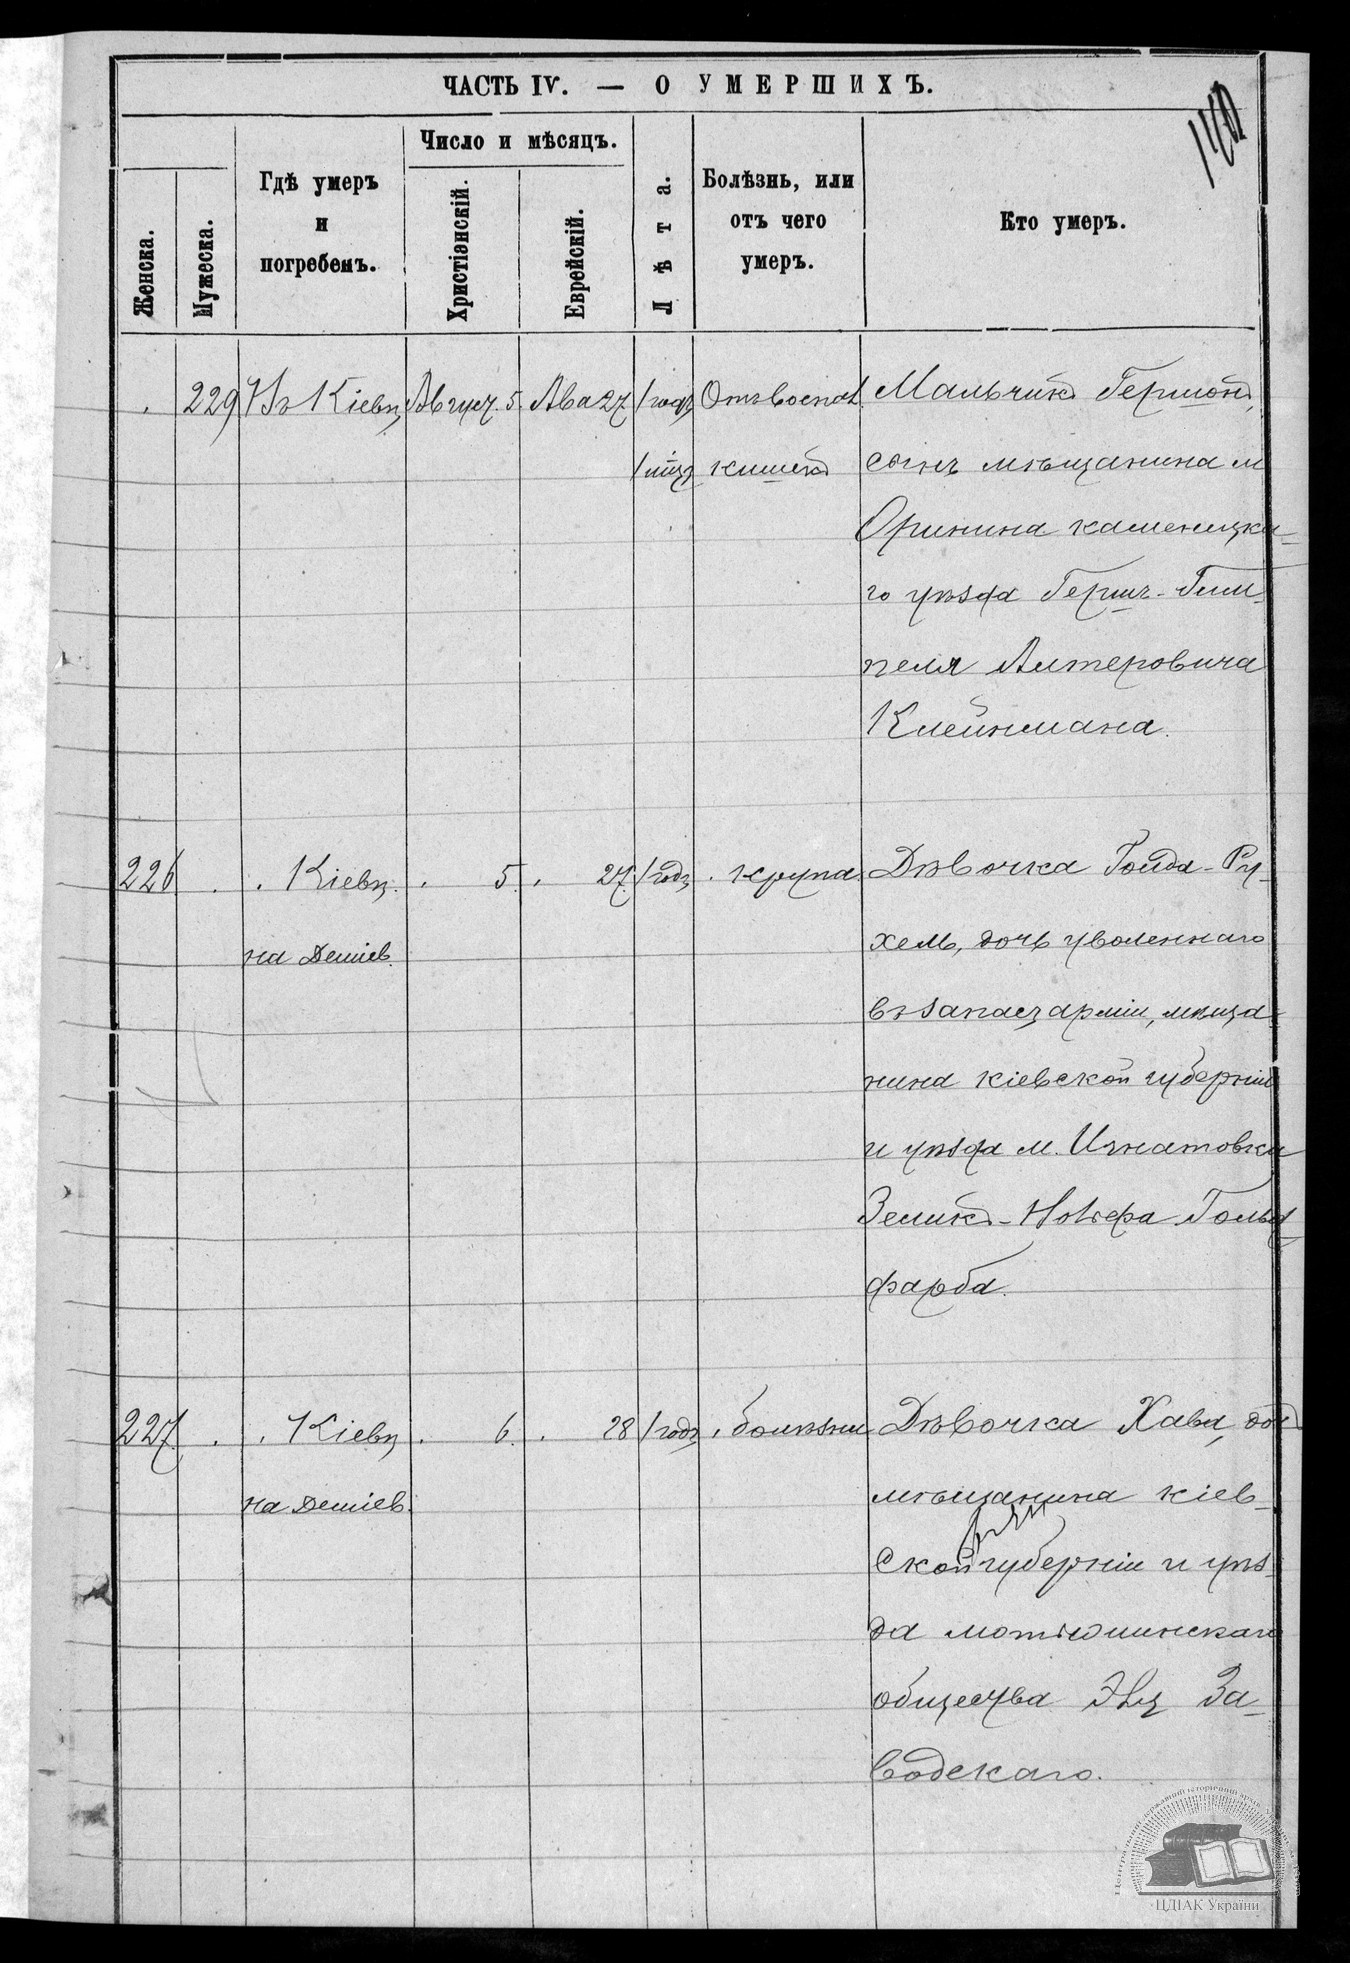 ЧАСТЬ IV. — О УМЕРШИХЪ.
Женска.
Мужеска.
Гдѣ умеръ
и
погребенъ.
Число и мѣсяцъ.
Христіанскій.
Еврейскій.
Лѣта.
Болѣзнь, или
отъ чего
умеръ.
Кто умеръ.
229 Въ Кіевѣ Август. 5. Ава 27 1 годъ Отъ воспал. Мальчикъ Гершонъ,
1 мцъ кишекъ сынъ мѣщанина м
Оринина каменецка-
го уѣзда Гершъ-Гим-
пеля Алтеровича
Клейнмана.
226 . . Кіевѣ. . 5. . 27. 1 годъ . крупа. Дѣвочка Гойда-Ру-
на Деміев. хель, дочь уволеннаго
въ запасъ арміи, мѣща-
нина кіевской губерніи
и уѣзда м. Игнатовки
Зеликъ-Нотера Гольд-
фарба.
227 . . Кіевѣ . 6. . 28 1 годъ . болѣзни Дѣвочка Хава, доч
на Деміев. мѣщанина кіев-
ской губерніи и уѣз-
да мотыжинскаго
общества За-
водскаго.
ЦДІАК України